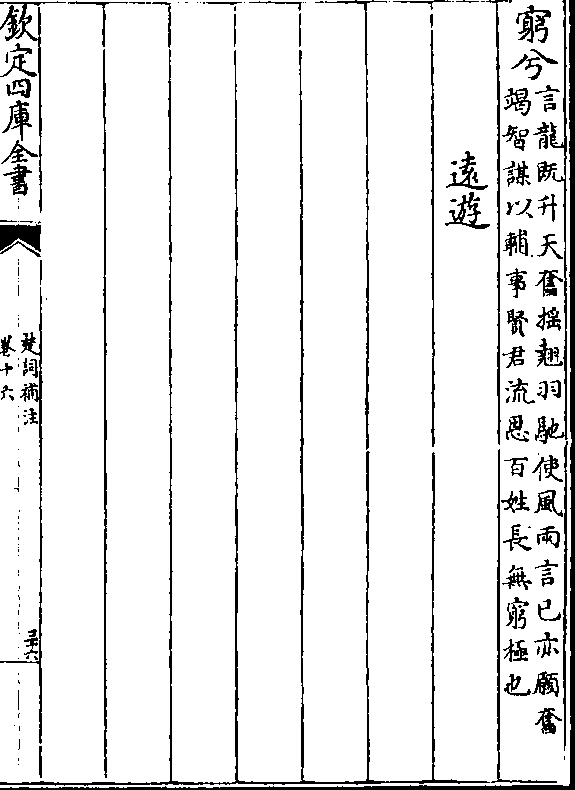 窮兮
言龍既升天奮揺翹羽馳使風雨言已亦願奮
竭智謀以輔事賢君流恩百姓長無窮極也
逺遊
欽定四庫全書
楚詞補注
卷十六
三十六